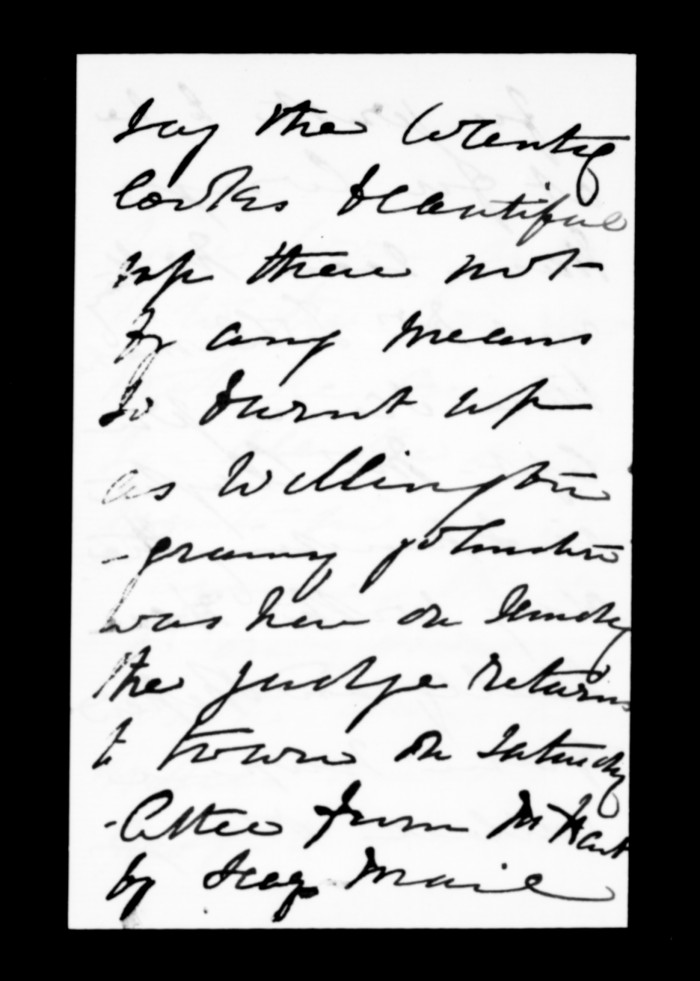 say the country
looks beautiful
up there not
by any means
so burnt up
as Wellington
- granny Johnston
was here on Sunday
the Judge returns
to town on Saturday
- letter from Mr Hart
by Mail